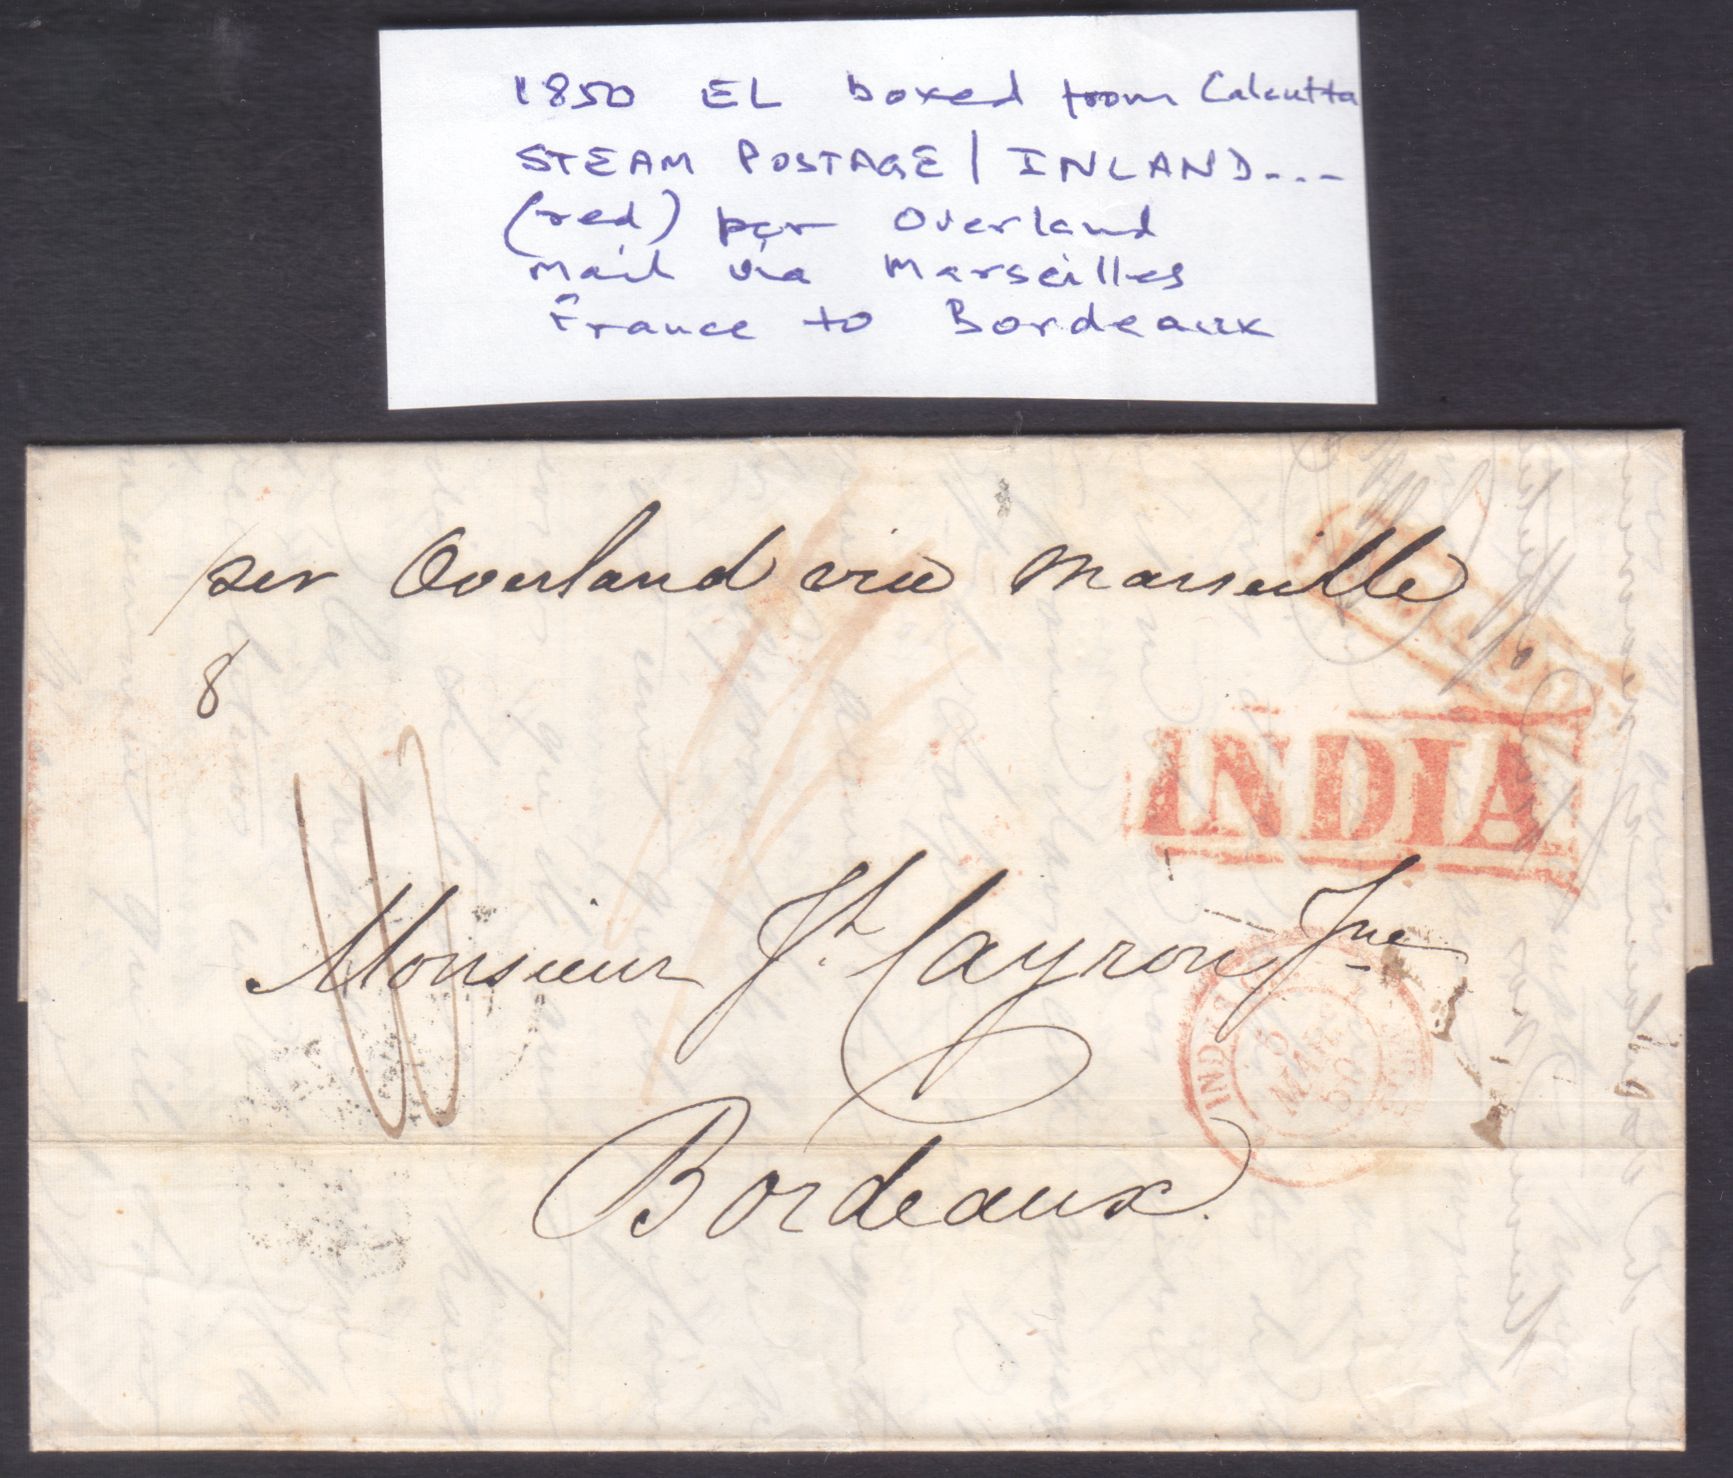 1850 EL boxed from Calcutta
STEAM POSTAGE / INLAND---
(red) per Overland
mail via Marseilles
France to Bordeaux
per Overland via Marseille
8
INDIA
Monsieur Jh. Cayrou Jne
IND
6
MARS
50
Bordeaux.